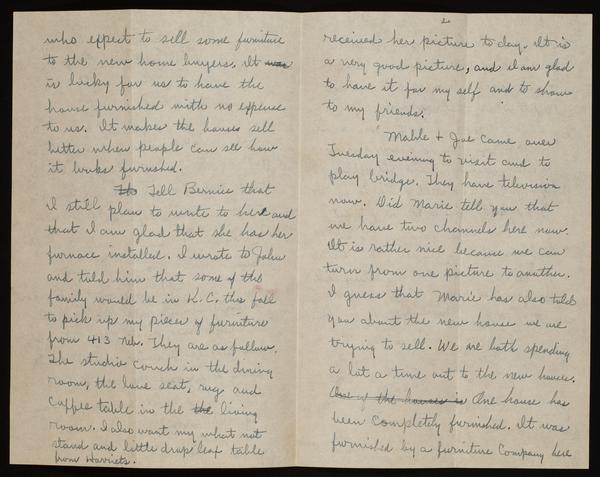 who expect to sell some furniture
to the new home buyers. It was
is lucky for us to have the
house furnished with no expense
to us. It makes the houses sell
better when people can see how
it looks furnished.
Tell Bernice that
I still plan to write to her and
that I am glad that she has her
furnace installed. I wrote to John
and told him that some of the
family would be in K.C. this fall
to pick up my pieces of furniture
from 413 Neb. They are as follow.
The studio couch in the dining
room, the love seat, rug and
coffee table in the the living
room. I also want my what not
stand and little drop leaf table
from Harriets.
2
received her picture to day. It is
a very good picture, and I am glad
to have it for my self and to show
to my friends.
Mable + Joe came over
Tuesday evening to visit and to
play bridge. They have television
now. Did Marie tell you that
we have two channels here now.
It is rather nice because we can
turn from one picture to another.
I guess that Marie has also told
you about the new house we are
trying to sell. We are both spending
a lot a time out to the new houses.
One of the houses is One house has
been completely furnished. It was
furnished by a furniture Company here